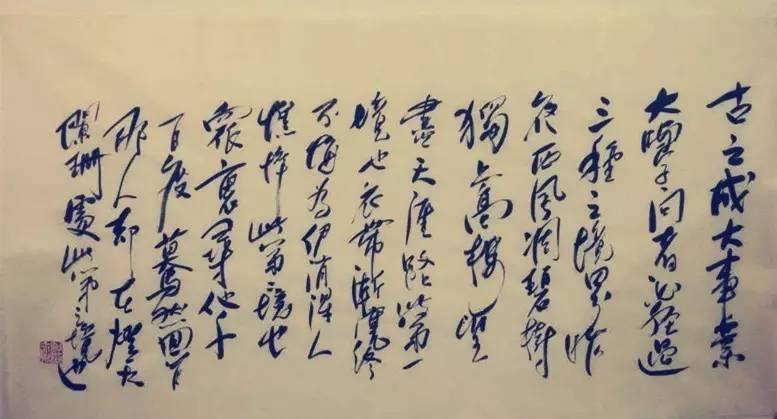 古之成大事業
大學問者必經過
三種之境界昨
夜西風凋碧樹
獨上高樓望
盡天涯路此第一
境也衣帶漸寬終
不悔為伊消得人
憔悴此第二境也
衆裏尋他千
百度驀然回首
那人却在燈火
闌珊處此第三境也